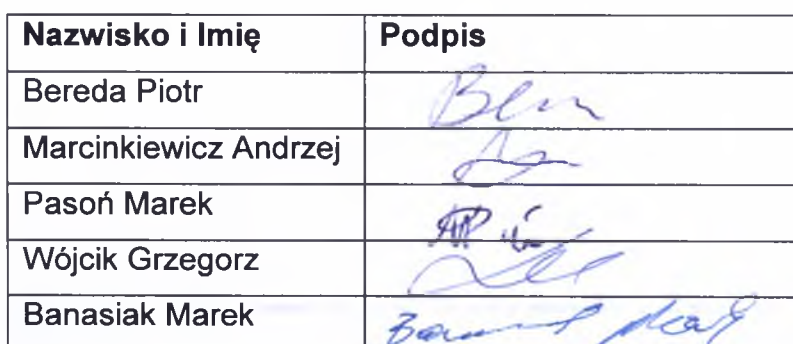 Nazwisko i Imię Podpis
Bereda Piotr
Marcinkiewicz Andrzej
Pasoń Marek
Wójcik Grzegorz
Banasiak Marek